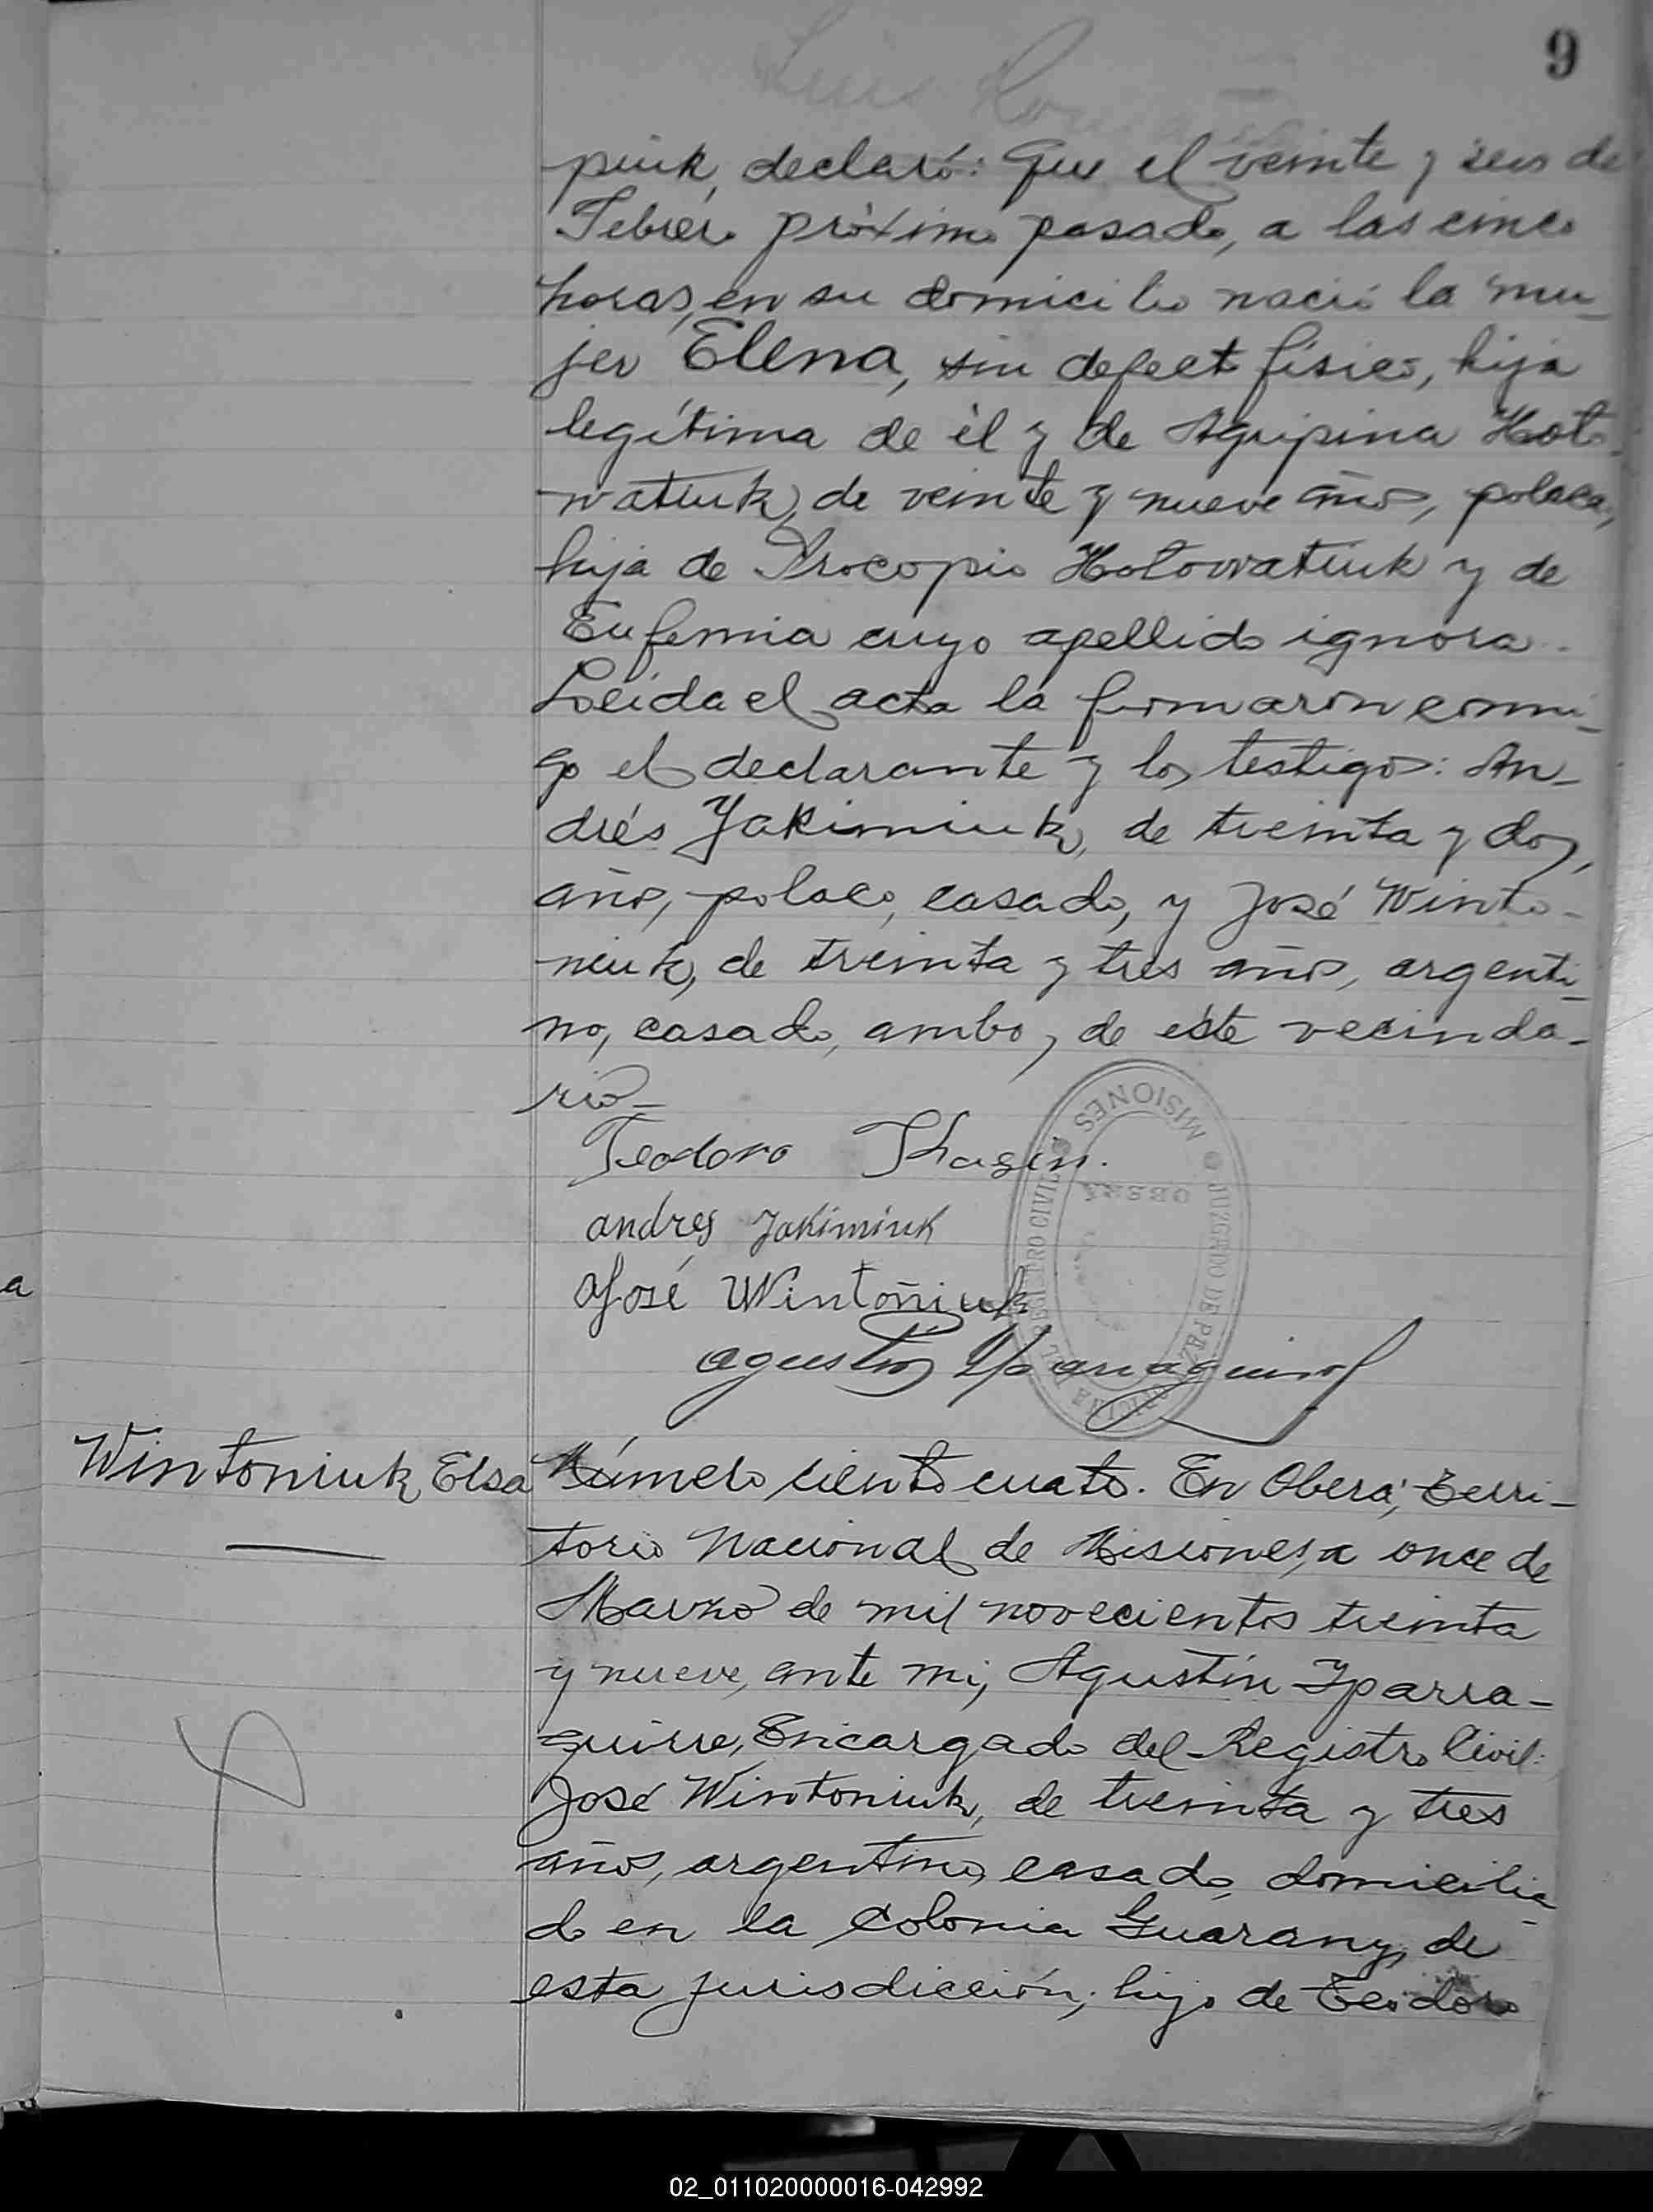 9
Luis
piuk, declaró: Que el veinte y seis de
Febrero próximo pasado, a las cinco
horas, en su domicilio nació la mu-
jer Elena, sin defecto físico, hija
legítima de él y de Agripina Hoto-
watiuk, de veinte y nueve años, polaca,
hija de Procopio Hotowatiuk y de
Eufemia cuyo apellido ignora.-
Leída el acta la firmaron conmi-
go el declarante y los testigos: An-
drés Yakimiuk, de treinta y dos
años, polaco, casado, y José Winto-
niuk, de treinta y tres años, argenti-
no, casado, ambos de éste vecinda-
rio-
Teodoro
andres Jakimiuk
José Wintoñiuk
Agustin Yparraguirre
MISIONES
JUZGADO DE PAZ
OFICINA DEL REGISTRO CIVIL
OBERÁ
Wintoniuk Elsa
Número ciento cuatro. En Oberá, Terri-
torio Nacional de Misiones, a once de
Marzo de mil novecientos treinta
y nueve, ante mi, Agustín Yparra-
guirre, Encargado del Registro Civil:
José Wintoniuk, de treinta y tres
años, argentino, casado, domicilia-
do en la Colonia Guarany, de
esta jurisdicción, hijo de Teodoro
02_011020000016-042992